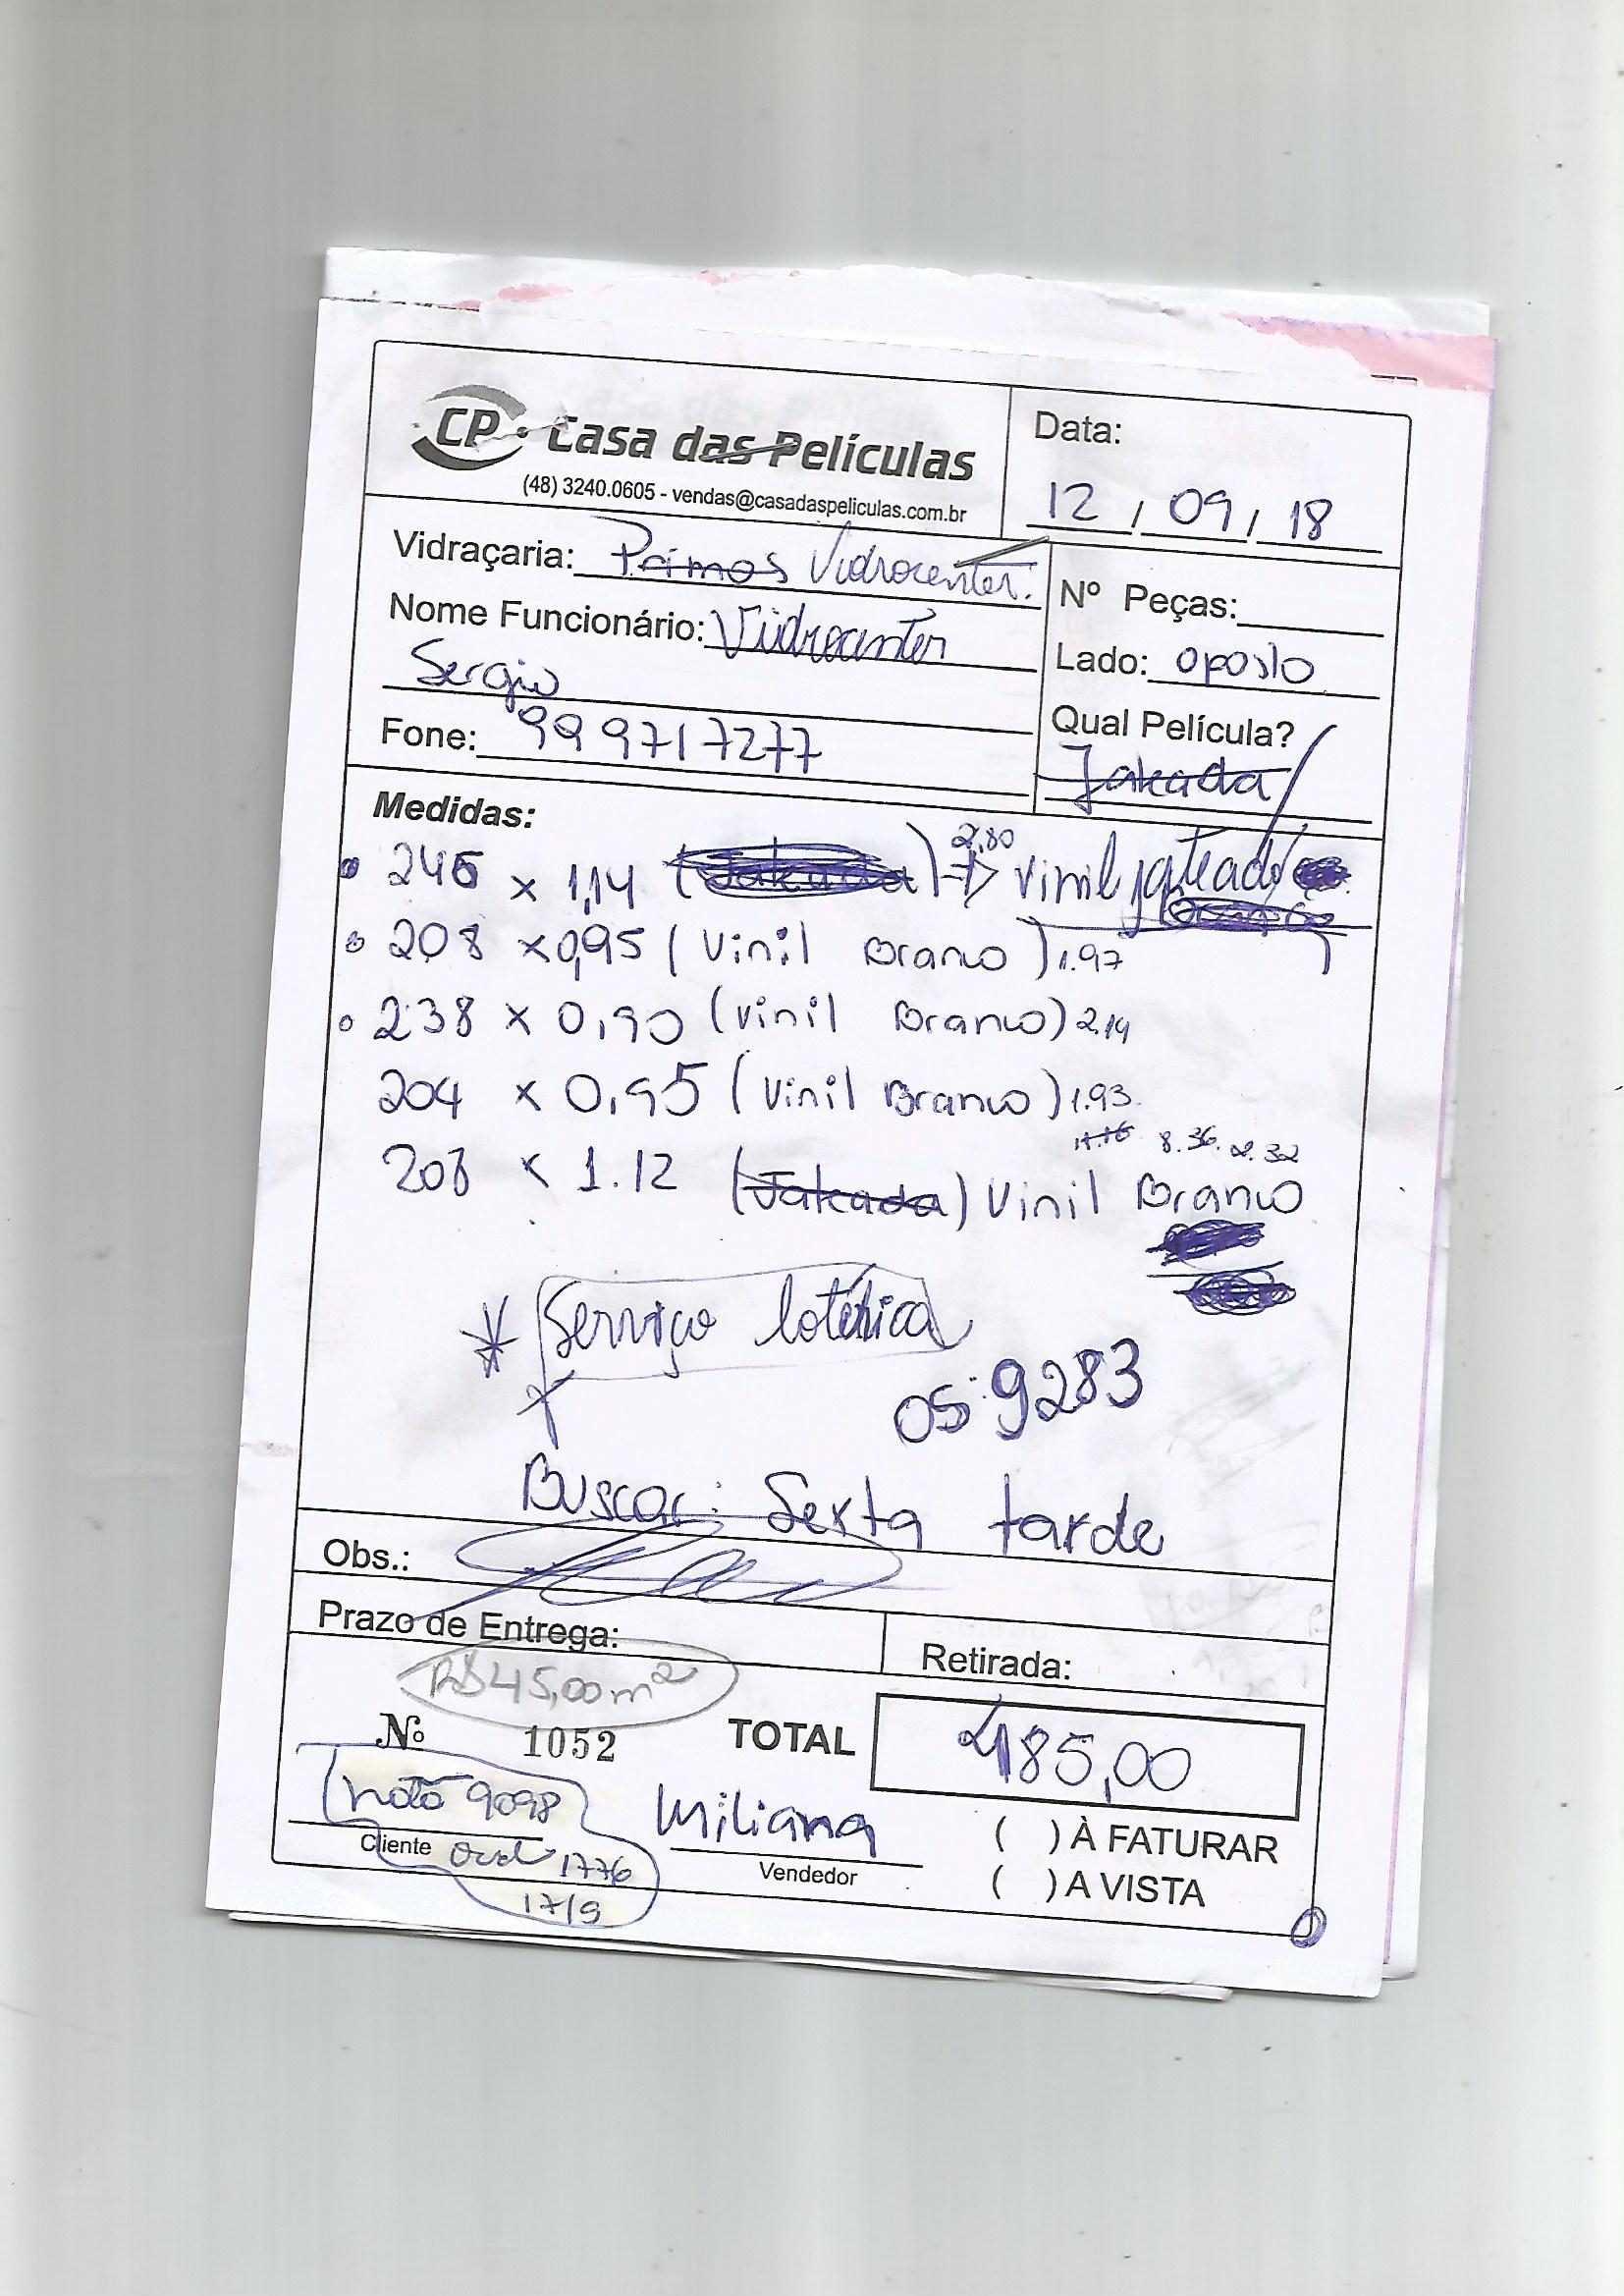 CP. Casa das Películas
(48) 3240.0605 - vendas@casadaspeliculas.com.br
Data:
12 / 09 / 18
Vidraçaria: Primos Vidrocenter.
Nome Funcionário: Vidrocenter
Sergio
Fone: 999717277
Nº Peças:
Lado: oposto
Qual Película?
Jateada
Medidas:
2.80
246 x 1,14 (Jateada) => Vinil jateado
208 x 0,95 (Vinil Branco) 1.97
238 x 0,90 (Vinil Branco) 2.14
204 x 0,95 (Vinil Branco) 1.93
8.36. 2.32
208 x 1.12 (Jateada) Vinil Branco
* Serviço lotérica
OS: 9283
Buscar: Sexta tarde
Obs.:
Prazo de Entrega:
Retirada:
R$45,00 m²
Nº 1052
TOTAL 485,00
nota 9098
Cliente
1776
17/9
Miliana
Vendedor
( ) À FATURAR
( ) A VISTA